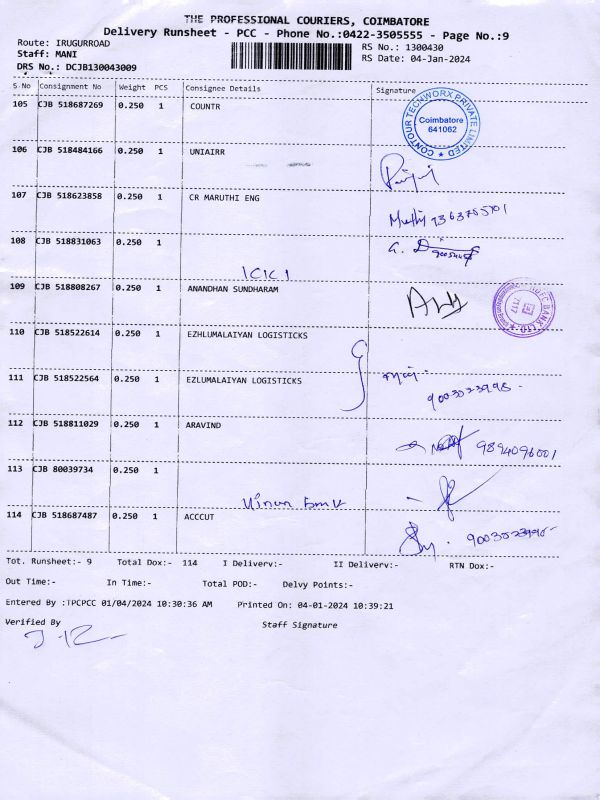 THE PROFESSIONAL COURIERS, COIMBATORE
Delivery Runsheet - PCC - Phone No.:0422-3505555 - Page No.:9
Route: IRUGURROAD
RS No.: 1300430
Staff: MANI
RS Date: 04-Jan-2024
DRS No.: DCJB130043009
S No Consignment No Weight PCS Consignee Details Signature
105 CJB 518687269 0.250 1 COUNTR
CONTOUR TECNWORX PRIVATE LIMITED
Coimbatore
641062
106 CJB 518484166 0.250 1 UNIAIRR
107 CJB 518623858 0.250 1 CR MARUTHI ENG
108 CJB 518831063 0.250 1
ICICI
109 CJB 518808267 0.250 1 ANANDHAN SUNDHARAM
BANK LTD
110 CJB 518522614 0.250 1 EZHLUMALAIYAN LOGISTICKS
111 CJB 518522564 0.250 1 EZLUMALAIYAN LOGISTICKS
112 CJB 518811029 0.250 1 ARAVIND
9894096001
113 CJB 80039734 0.250 1
114 CJB 518687487 0.250 1 ACCCUT
Tot. Runsheet:- 9 Total Dox:- 114 I Delivery:- II Delivery:- RTN Dox:-
Out Time:- In Time:- Total POD:- Delvy Points:-
Entered By :TPCPCC 01/04/2024 10:30:36 AM Printed On: 04-01-2024 10:39:21
Verified By
Staff Signature